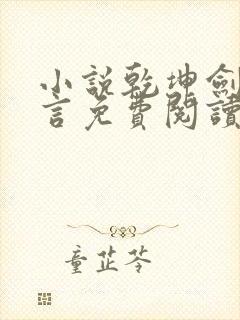 小說乾坤劍
言免費閱讀
童芷苓